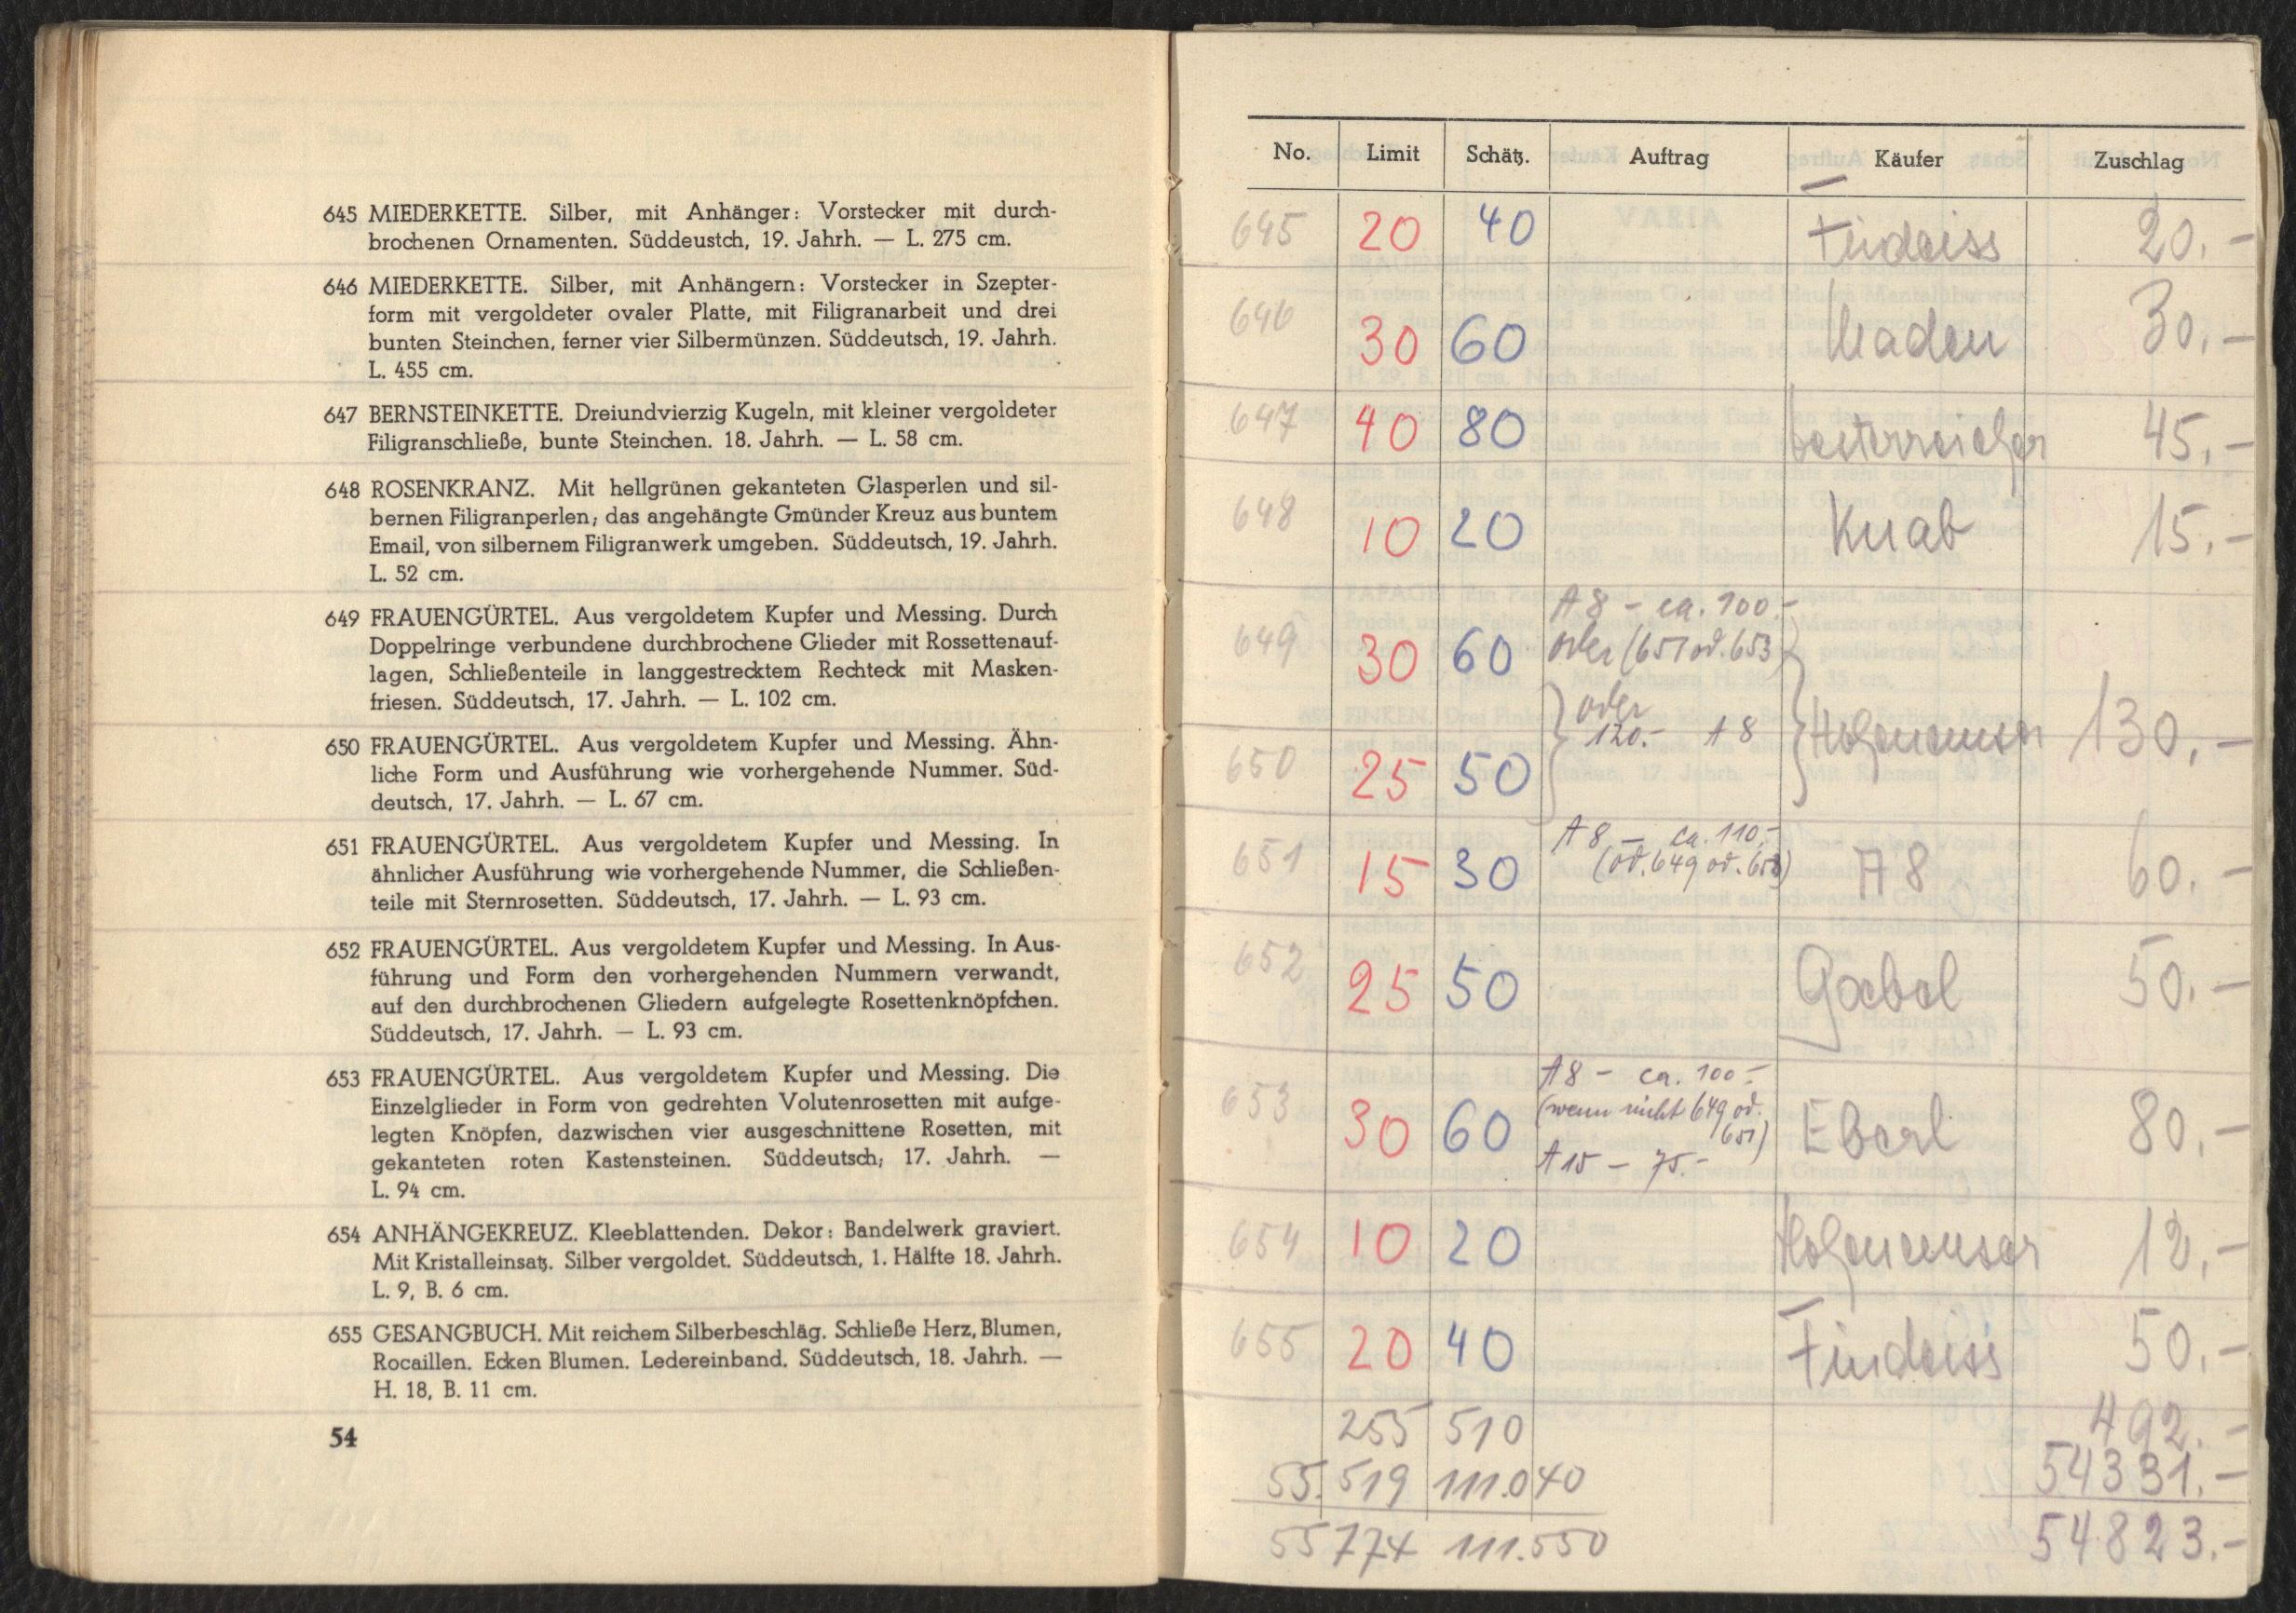 645 MIEDERKETTE. Silber, mit Anhänger: Vorstecker mit durch-
brochenen Ornamenten. Süddeustch, 19. Jahrh. — L. 275 cm.
646 MIEDERKETTE. Silber, mit Anhängern: Vorstecker in Szepter-
form mit vergoldeter ovaler Platte, mit Filigranarbeit und drei
bunten Steinchen, ferner vier Silbermünzen. Süddeutsch, 19. Jahrh.
L. 455 cm.
647 BERNSTEINKETTE. Dreiundvierzig Kugeln, mit kleiner vergoldeter
Filigranschließe, bunte Steinchen. 18. Jahrh. — L. 58 cm.
648 ROSENKRANZ. Mit hellgrünen gekanteten Glasperlen und sil-
bernen Filigranperlen; das angehängte Gmünder Kreuz aus buntem
Email, von silbernem Filigranwerk umgeben. Süddeutsch, 19. Jahrh.
L. 52 cm.
649 FRAUENGÜRTEL. Aus vergoldetem Kupfer und Messing. Durch
Doppelringe verbundene durchbrochene Glieder mit Rossettenauf-
lagen, Schließenteile in langgestrecktem Rechteck mit Masken-
friesen. Süddeutsch, 17. Jahrh. — L. 102 cm.
650 FRAUENGÜRTEL. Aus vergoldetem Kupfer und Messing. Ähn-
liche Form und Ausführung wie vorhergehende Nummer. Süd-
deutsch, 17. Jahrh. — L. 67 cm.
651 FRAUENGÜRTEL. Aus vergoldetem Kupfer und Messing. In
ähnlicher Ausführung wie vorhergehende Nummer, die Schließen-
teile mit Sternrosetten. Süddeutsch, 17. Jahrh. — L. 93 cm.
652 FRAUENGÜRTEL. Aus vergoldetem Kupfer und Messing. In Aus-
führung und Form den vorhergehenden Nummern verwandt,
auf den durchbrochenen Gliedern aufgelegte Rosettenknöpfchen.
Süddeutsch, 17. Jahrh. — L. 93 cm.
653 FRAUENGÜRTEL. Aus vergoldetem Kupfer und Messing. Die
Einzelglieder in Form von gedrehten Volutenrosetten mit aufge-
legten Knöpfen, dazwischen vier ausgeschnittene Rosetten, mit
gekanteten roten Kastensteinen. Süddeutsch; 17. Jahrh. —
L. 94 cm.
654 ANHÄNGEKREUZ. Kleeblattenden. Dekor: Bandelwerk graviert.
Mit Kristalleinsatz. Silber vergoldet. Süddeutsch, 1. Hälfte 18. Jahrh.
L. 9, B. 6 cm.
655 GESANGBUCH. Mit reichem Silberbeschläg. Schließe Herz, Blumen,
Rocaillen. Ecken Blumen. Ledereinband. Süddeutsch, 18. Jahrh. —
H. 18, B. 11 cm.
54
No. Limit Schätz. Auftrag Käufer Zuschlag
645 20 40 Findeiss 20.-
646 30 60 30.-
647 40 80 Oesterreicher 45.-
648 10 20 Knab 15.-
A 8 - ca. 100.-
649 30 60 oder (651 od. 653
oder
120.- A 8 130.-
650 25 50
A 8 - ca. 110.-
(od. 649 od. 653)
651 15 30 A 8 60.-
652 25 50 Gabel 50.-
A 8 - ca. 100.-
(wenn nicht 649 od.
651)
653 30 60 Eberl 80.-
A 15 - 75.-
654 10 20 12.-
655 20 40 Findeiss 50.-
255 510 492.-
55.519 111.040 54331.-
55774 111.550 54.823.-